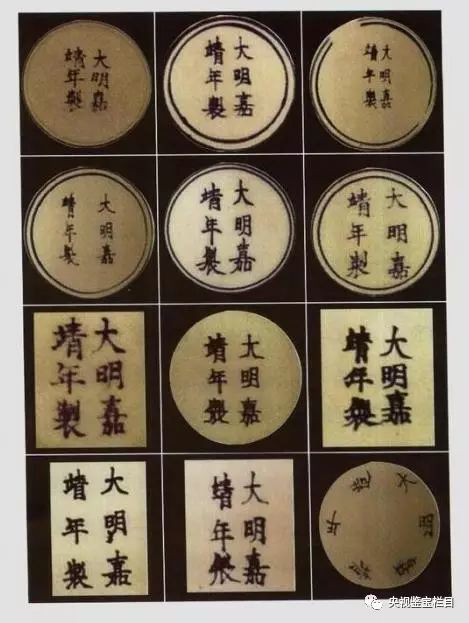 大明嘉
靖年製
大明嘉
靖年製
大明嘉
靖年製
大明嘉
靖年製
大明嘉
靖年製
大明嘉
靖年製
大明嘉
靖年製
大明嘉
靖年製
大明嘉
靖年製
大明嘉
靖年製
大明嘉
靖年製
大明嘉靖年製
央视鉴宝栏目